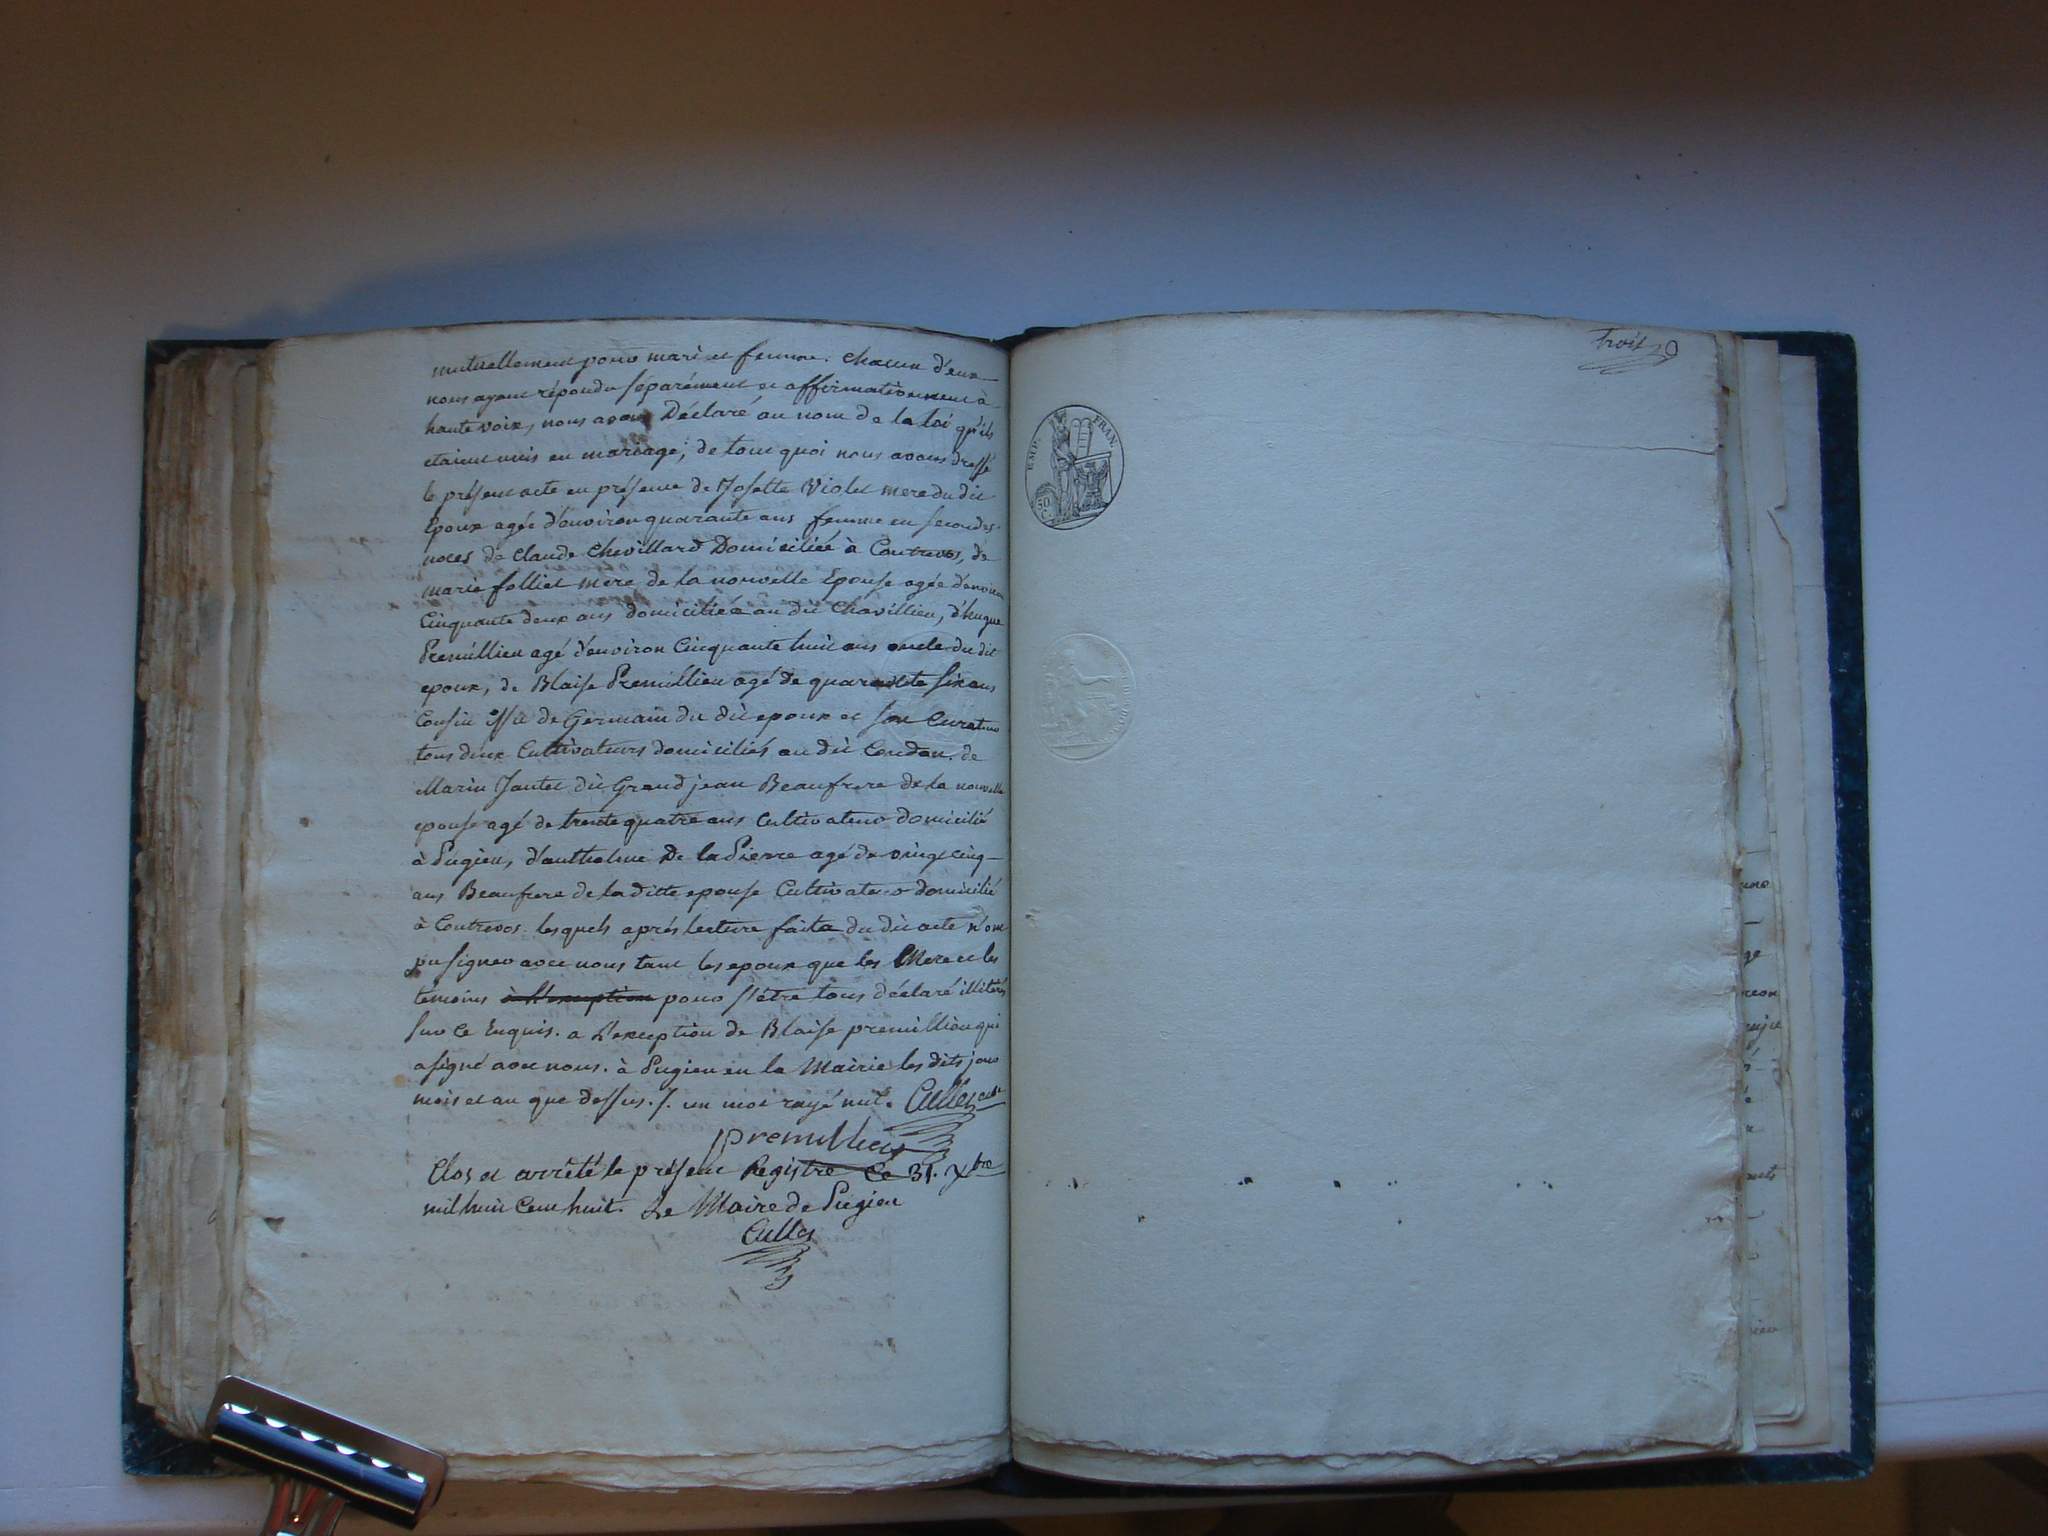 mutuellement pour mari et femme. chacun d'eux
nous ayant répondu séparément et affirmativement à
haute voix, nous avons Déclaré au nom de la loi qu'ils
etaient unis en mariage; de tout quoi nous avons dressé
le présent acte en présence de Josette Violet mere du dit
Epoux agée d'environ quarante ans femme en secondes
noces de Claude Chevillard Domiciliée à Contrevos, de
marie folliet mere de la nouvelle Epouse agée d'environ
Cinquante deux ans domiciliée au dit Chavillieu, d'hugue
Premillieu agé d'environ Cinquante huit ans oncle du dit
epoux, de Blaise Premillieu agé de quarante six ans
Cousin issu de Germain du dit epoux et son Curateur
tous deux Cultivateurs domiciliés au dit Condon. de
Marin Jantet dit Grand jean Beaufrere de la nouvelle
epouse agé de trente quatre ans Cultivateur domicilié
à Pugieu, d'anthelme De la Pierre agé de vingt cinq
ans Beaufrere de la ditte epouse Cultivateur domicilié
à Contrevos. lesquels aprés lecture faite du dit acte n'ont
pu signer avec nous tant les epoux que les Mere et les
temoins à l'exception pour s'être tous déclaré illiterés
sur ce Enquis. a L'exception de Blaise premillieu qui
a signé avec nous. à Pugieu en la Mairie les dits jour
mois et an que dessus. /. un mot rayé nul. Cullet
Premillieu
Clos et arrêté le présent Registre Ce 31. Xbre
mil huit Cent huit. Le Maire de Pugieu
Cullet
Trois
EMP. FRAN.
50
C.